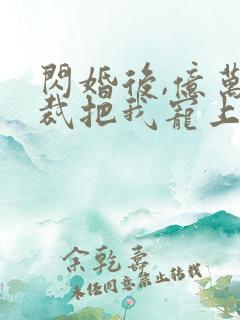 閃婚後,億萬
裁把我寵上
余乾
未經同意禁止轉載